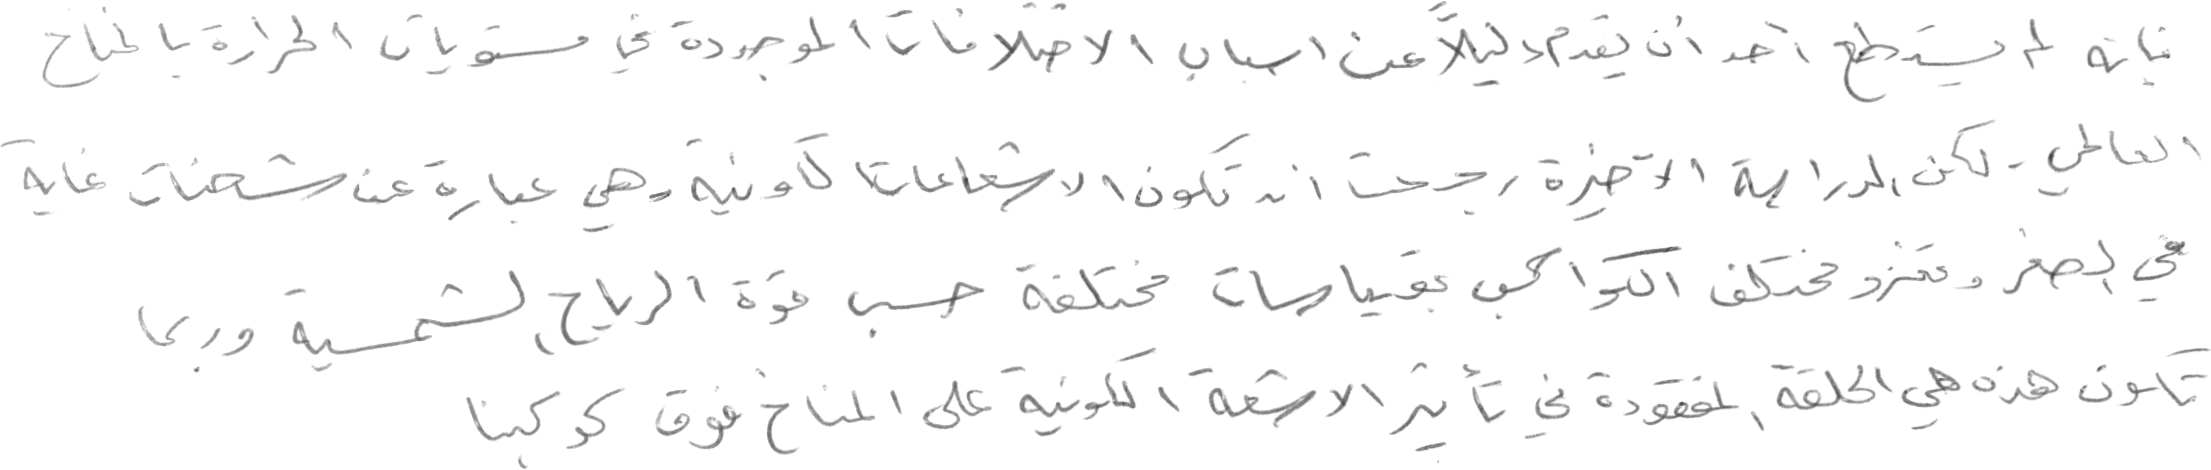 فانه لم يستطع أحد أن يقدم دليلاً عن اسباب الاختلافات الموجودة في مستويات الحرارة بالمناخ
العالمي. لكن الدراسة الأخيرة رجحت انه تكون الاشعاعات الكونية وهي عبارة عن شحنات غاية
في الصغر وتغزو مختلف الكواكب بقياسات مختلفة حسب قوة الرياح الشمسية وربما
تكون هذه هي الحلقة المفقودة في تأثير الاشعة الكونية على المناخ فوق كوكبنا